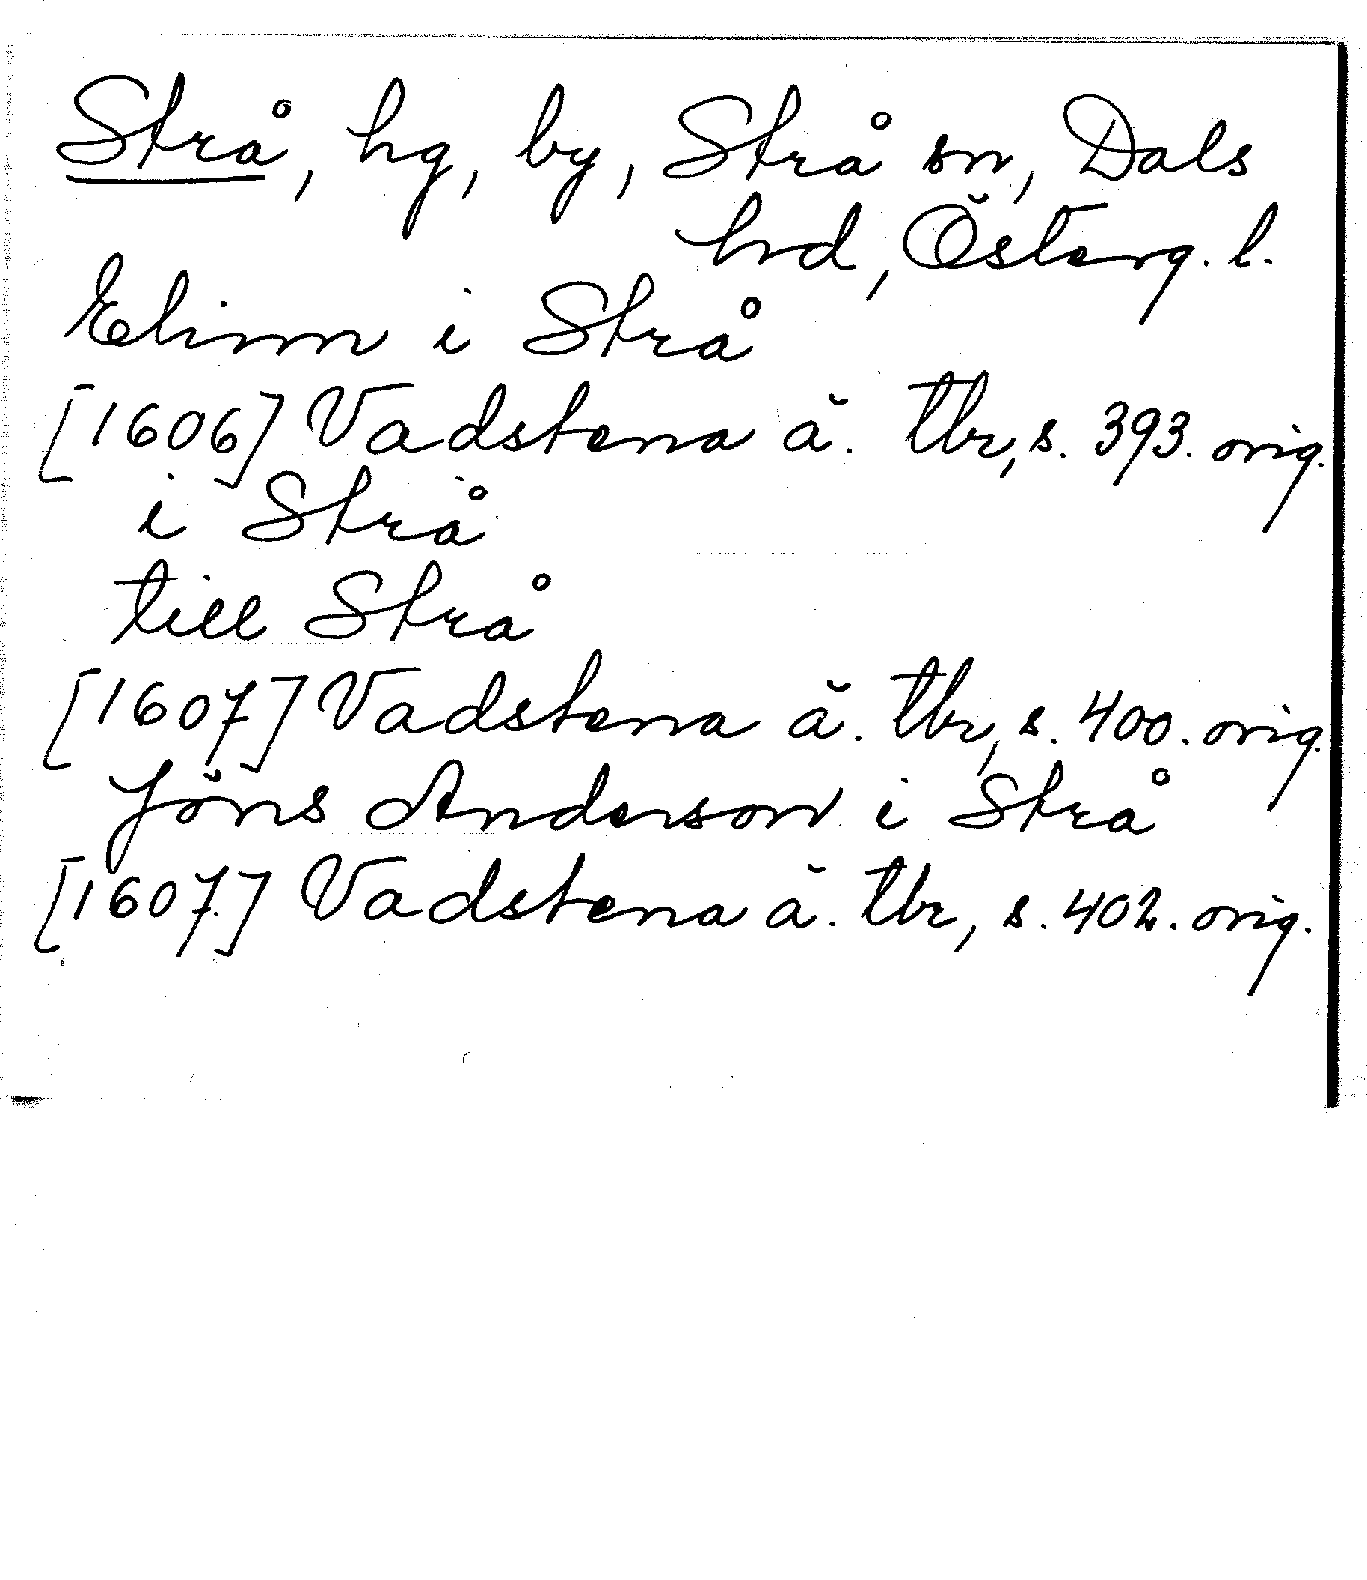 Strå, hg, by, Strå sn, Dals
hrd, Österg. l.
Elinn i Strå
[1606] Vadstena ä. tbr, s. 393. orig.
i Strå
till Strå
[1607] Vadstena ä. tbr, s. 400. orig.
Jöns Anderson i Strå
[1607] Vadstena ä. tbr, s. 402. orig.